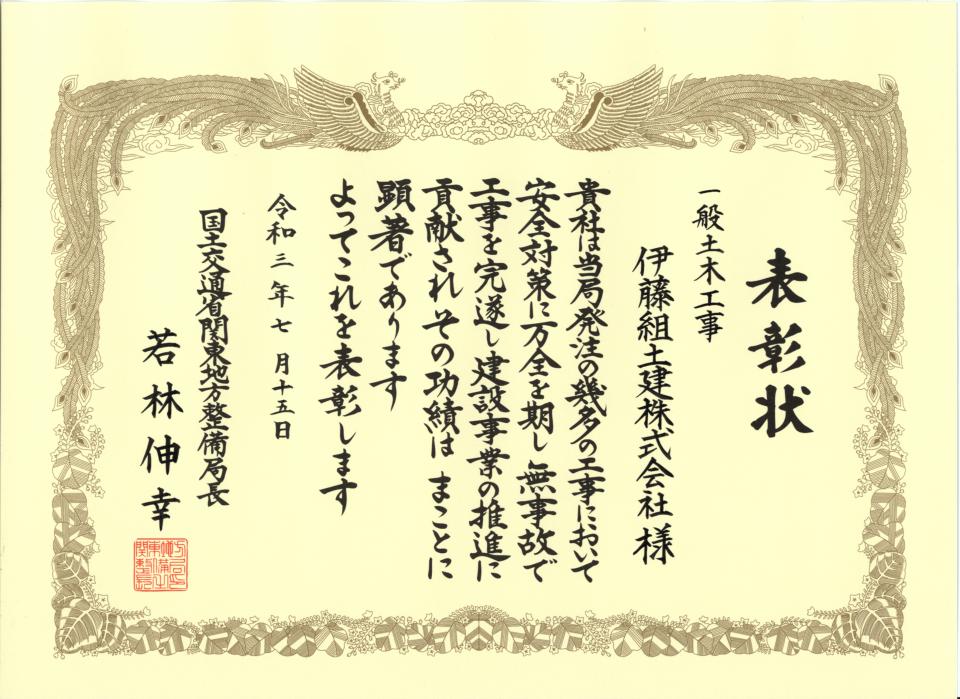 表彰状
一般土木工事
伊藤組土建株式会社様
貴社は当局発注の幾多の工事において
安全対策に万全を期し無事故で
工事を完遂し建設事業の推進に
貢献されその功績はまことに
顕著であります
よってこれを表彰します
令和三年七月十五日
国土交通省関東地方整備局長
若林伸幸